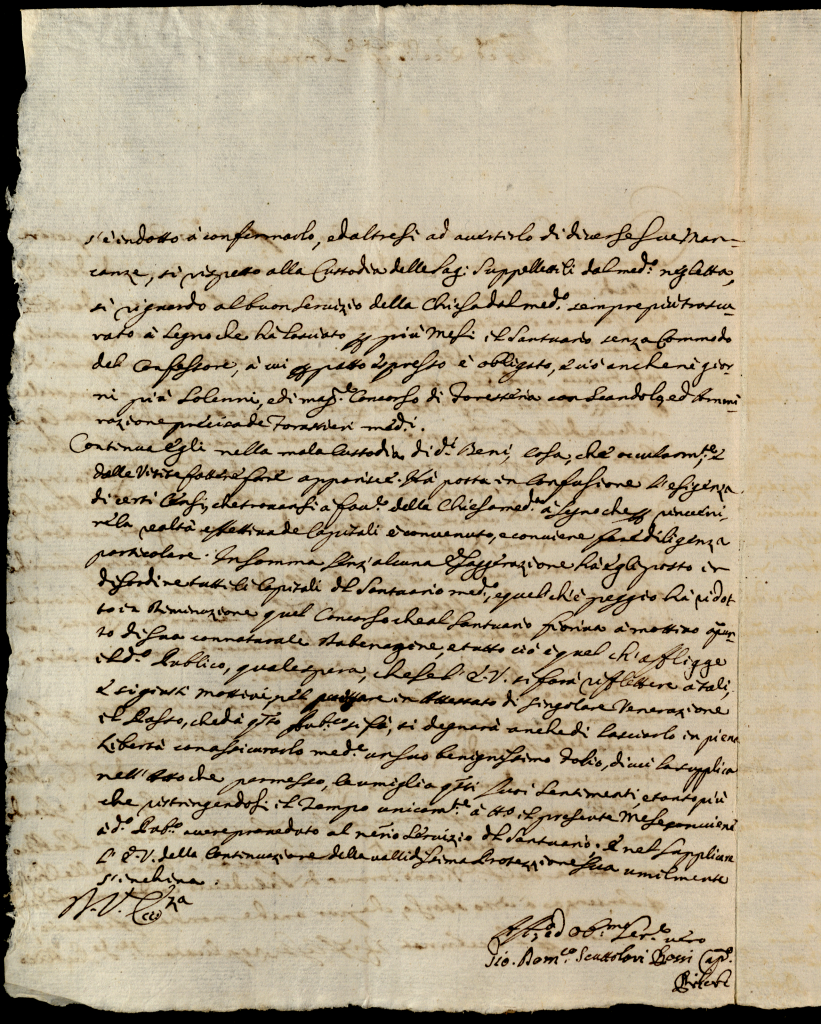 s'è indotto à confirmarlo, ed altresi ad avertirlo di diverse sue Man-
canze, si rispetto alla Custodia delle Sag: Suppellettili dal med.º negletta,
si riguardo al buon servizio della Chiesa dal med.º sempre più trascu-
rato à segno che hà lasciato p più Mesi il Santuario senza Commodo
del Confessore, à cui p patto espresso è obbligato, e ciò anche né gior-
ni più solenni, e di mag.r Concorso di foresteria con scandolo, ed Ammi-
razione de forastieri med.i.
Continua Egli nella mala Custodia di d.i Beni, cosa, che occularm.te
dalle Visite fatte fare apparisce. Hà posta in Confusione l'esigenza
di certi Censi, che trovansi a fav.e della Chiesa med.a à segno che p
la realtà effettiva de Capitali è convenuto, e conviene fare diligenza
particolare. In somma senz'alcuna Esaggerazione hà egli posto in
disordine tutti li Capitali del Santuario med.º, e quel ch'è peggio hà ridot-
to in Diminuzione quel Concorso che al Santuario fioriva à mottivo
di sua connaturale, e tutto ciò è quel ch'affligge
il d.º Publico, quale spera, che se l'E.V. si farà riflettere à tali,
e sì giusti mottivi, in Attestato di singolare Venerazione
il Passo, che dà q.sto Pub.co si fà, si degnarà anche di lasciarlo in piena
libertà con assicurarlo med.e un suo benignissimo foglio, di cui la supplica
nell'Atto che permesso, le umiglia q.sti suoi sentimenti, e tanto più
che ristringendosi il Tempo unicam.te à tt.º il presente Mese conviene
à d.º Pub.º avere proveduto al nērio servizio del Santuario. E nel supplicare
l'E.V. della Continuazione della vallidissima Protezzione sua umilmente
s'inchina.
D. V. Ecc.za
ed Ob.mo Ser.e vero
Gio. Dom.co Rossi